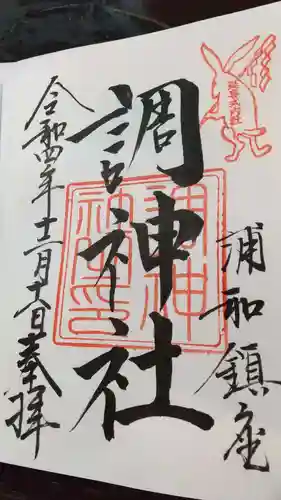 浦和鎮座
調神社
調神社印
令和四年十二月十八日奉拝